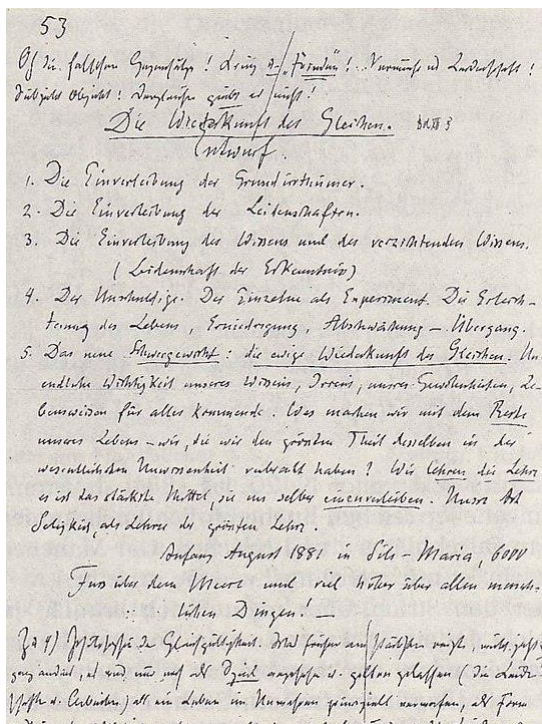 53
Oh die falschen Gegensätze! Krieg u. "Frieden"! Vernunft und Leidenschaft!
Subjekt Objekt! Dergleichen giebt es nicht!
Die Wiederkunft des Gleichen.
Entwurf.
1. Die Einverleibung der Grundirrthümer.
2. Die Einverleibung der Leidenschaften.
3. Die Einverleibung des Wissens und des verzichtenden Wissens.
(Leidenschaft der Erkenntniß)
4. Der Unschuldige. Der Einzelne als Experiment. Die Erleich-
terung des Lebens, Erniedrigung, Abschwächung – Übergang.
5. Das neue Schwergewicht: die ewige Wiederkunft des Gleichen. Un
endliche Wichtigkeit unseres Wissens, Irrens, unsrer Gewohnheiten, Le-
bensweisen für alles Kommende. Was machen wir mit dem Reste
unseres Lebens – wir, die wir den grössten Theil desselben in der
wesentlichsten Unwissenheit verbracht haben? Wir lehren die Lehre
es ist das stärkste Mittel, sie uns selber einzuverleiben. Unsre Art
Seligkeit, als Lehrer der grössten Lehre.
Anfang August 1881 in Sils-Maria, 6000
Fuss über dem Meere und viel höher über allen mensch-
lichen Dingen! –
Zu 4) Philosophie der Gleichgültigkeit. Was früher am stärksten reizte, wirkt jetzt
ganz anders, es wird nur noch als Spiel angesehn u. gelten gelassen (die Leiden
schaften u. Arbeiten) als ein Leben im Unwahren principiell verworfen, als Form